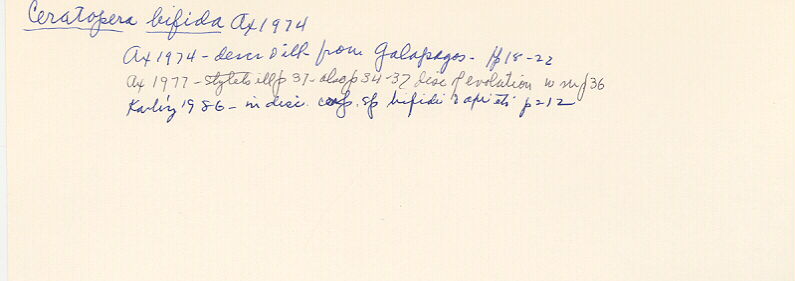 Ceratopera bifida Ax 1974
Ax 1974 - descr & ill from Galapagos - pp 18-22
Ax 1977 - stylets ill p 37 - also p 34-37 disc of evolution w
Karling 1986 - in disc. sp bifida & axi p 212